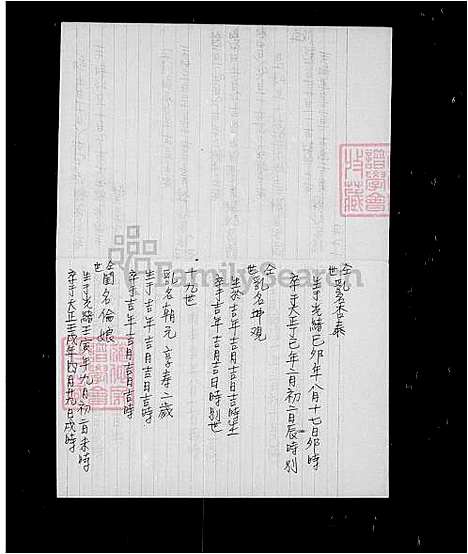 仝世乳名杏春
生于光緒己卯年八月十七日卯時
卒于大正丁巳年二月初二日辰時別
仝世乳名坤观
生於吉年吉月吉日吉時生
卒于吉年吉月吉日時別世
十九世
乳名朝元 享春二歲
生于吉年吉月吉日吉時
卒于吉年吉月吉日吉時
仝世閨名倫娘
生于光緒壬寅年九月初一日未時
卒于大正壬戌年四月廿九日戌時
譜學會收藏
FamilySearch